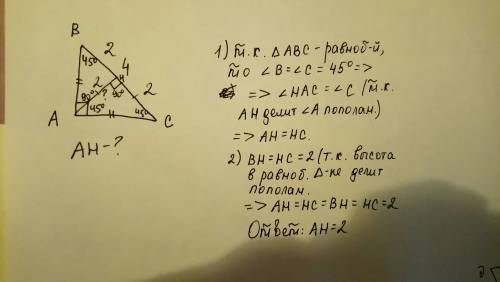 B
2
45°
4
2
H
2
?
90°
90°
45°
45°
A
C
AH-?
1) т.к. △ABC - равноб-й,
то ∠B=∠C = 45° =>
=> ∠HAC = ∠C (т.к.
AH делит ∠A пополам.)
=> AH = HC.
2) BH = HC = 2 (т.к. высота
в равноб. △-ке делит
пополам.
=> AH = HC = BH = HC = 2
Ответ: AH = 2